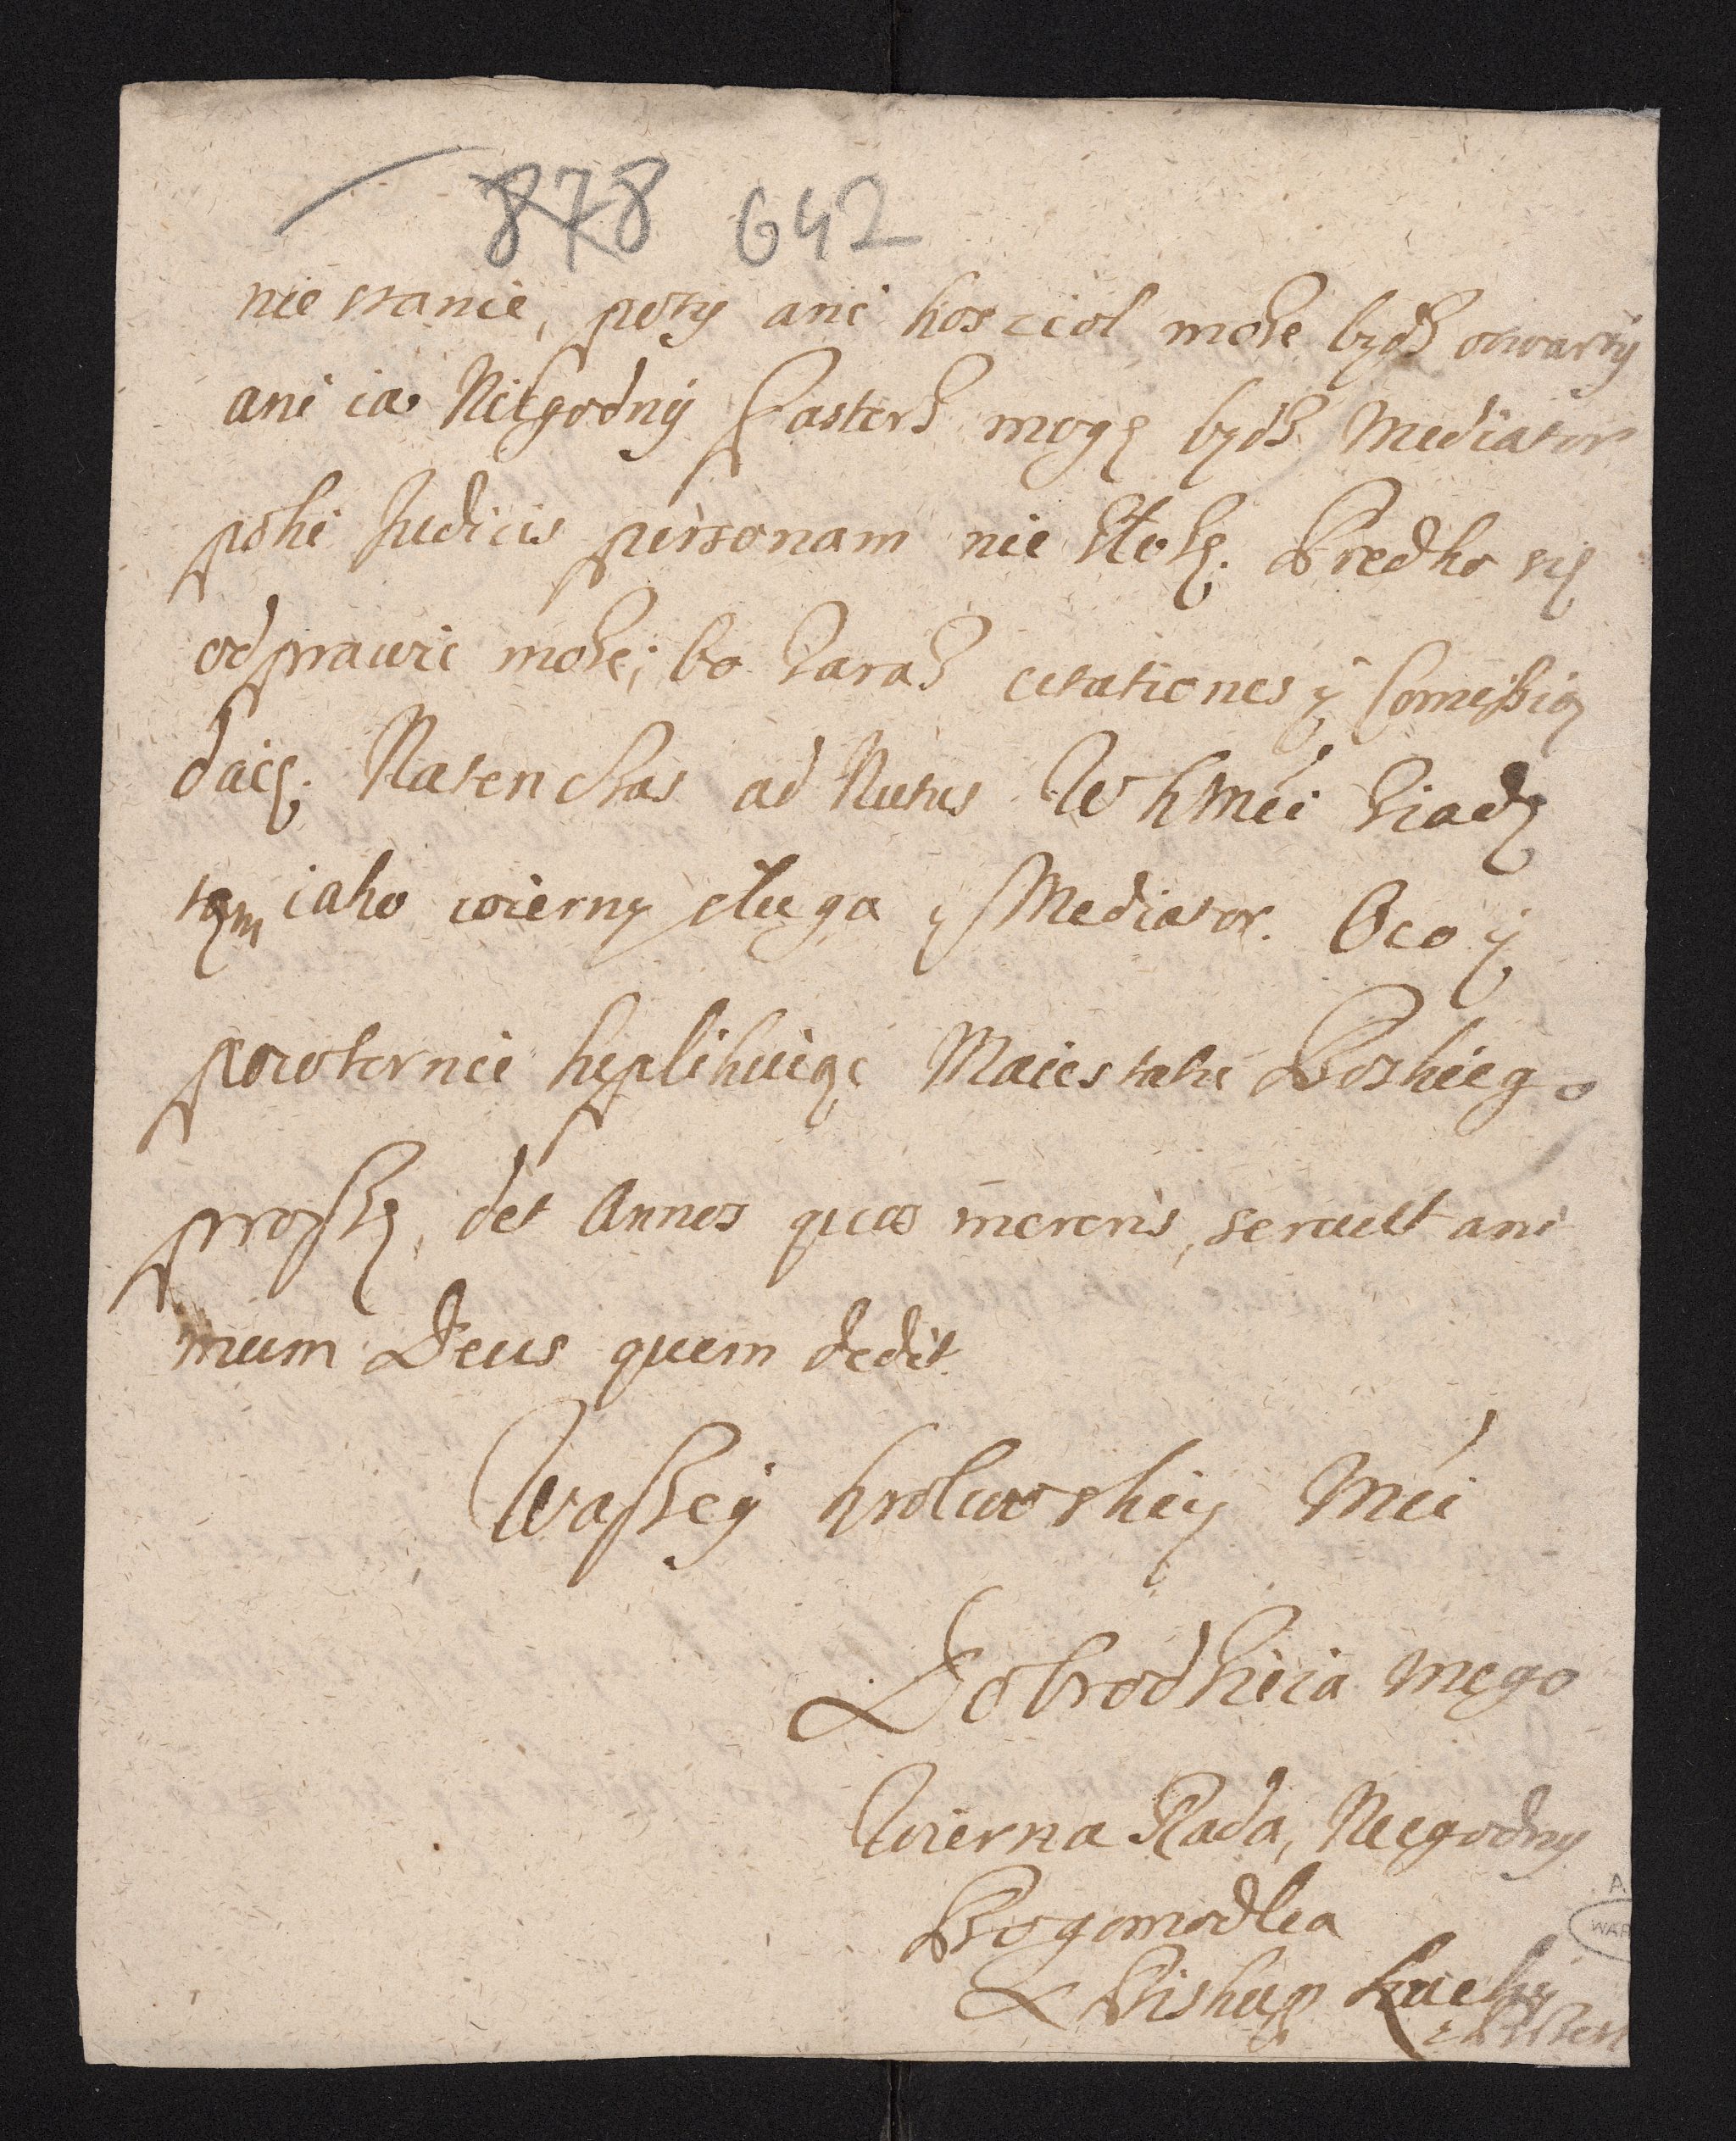 878 642
nie stanie, poty ani kosciol może bydz otwarty
ani ia Niegodny Pasterz mogę bydz Mediator
poki Judicis personam nie złożę. Prędko się
odprawic może; bo zaraz citationes y Comissią
daię. Naten czas ad Nutus W K Mći ziadę
tam iako wierny sługa y Mediator. Oco y
powtornie supplikuiąc Maiestatu Boskiego
proszę, det Annos quos mereris, servet ani
mum Deus quem dedit.
Waszey Krolewskiey Mći
Dobrodzieia mego
Wierna Rada, Niegodny
Bogomodlca
X Biskup Łucki
WAR